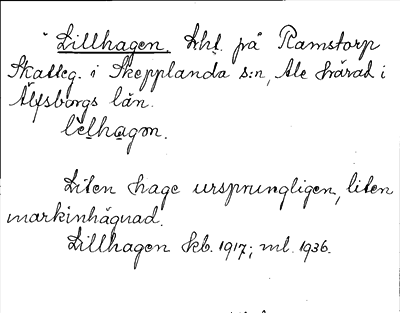 Lillhagen. Lht. på Ramstorp
Skatteg. i Skepplanda s:n, Ale härad i
Älfsborgs län.
lèlhagən.
Liten hage ursprungligen, liten
markinhägnad.
Lillhagen kb. 1917; ml. 1936.